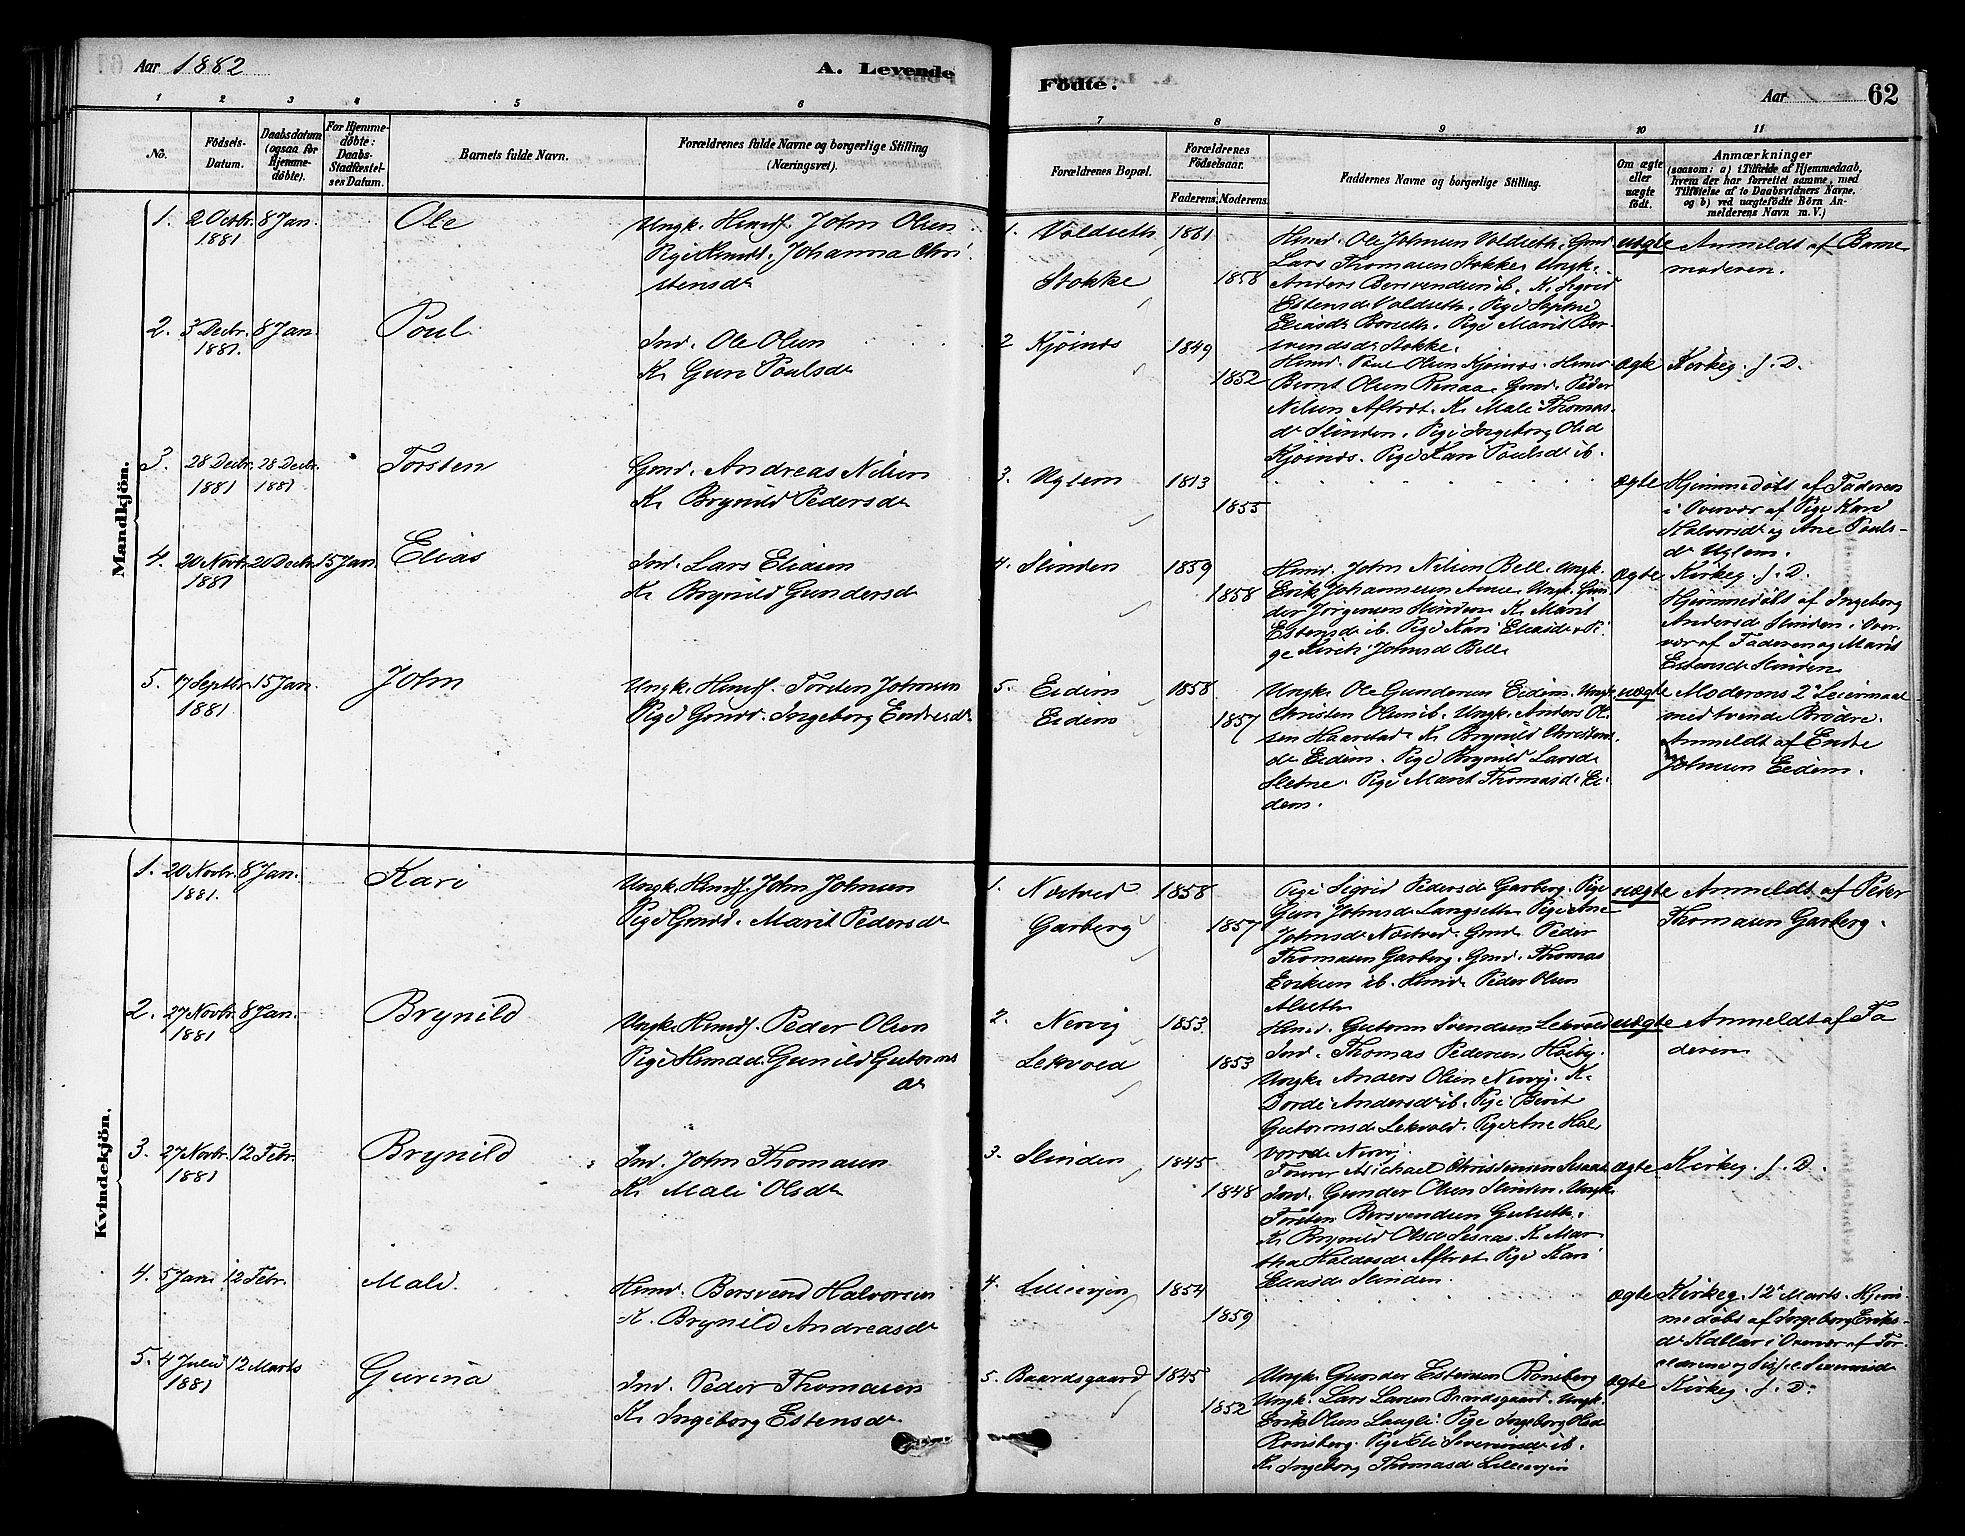 Aar 1882
A. Levende
Födte.
Aar
62
1 2 3 4 5 6
7 8 9 10 11
No.
Födsels-
Datum.
Daabsdatum
(ogsaa for
Hjemme-
döbte).
For Hjemme-
döbte:
Daabs-
Stadfæstel-
ses Datum.
Barnets fulde Navn.
Forældrenes fulde Navne og borgerlige Stilling
(Næringsvei).
Forældrenes Bopæl.
Forældrenes
Födselsaar.
Faderens. Moderens.
Faddernes Navne og borgerlige Stilling.
Om ægte
eller
uægte
födt.
Anmærkninger
(saasom: a) i Tilfælde af Hjemmedaab,
hvem der har forrettet samme, med
Tilföielse af to Daabsvidners Navne,
og b) ved uægtefödte Börn An-
melderens Navn m. V.)
Mandkjön.
1. 2 Octbr. 8 Jan. Ole
1881
Ungk. Hmdss. John Olsen
Pige Hmdd. Johanna Chri
stensdr
1. Voldseth 1861
Stokke 1858
Hmd. Ole Johnsen Voldseth. Gmd.
Lars Thomasen Stokke. Ungk.
Anders Bersvendsen ib. K. Sigrid
Estensdr Voldseth. Pige Sophie
Eliasdr Borseth. Pige Marit Ber
svendsdr Stokke.
uægte Anmeldt af Barne
moderen.
2. 3 Decbr. 8 Jan. Poul
1881.
Ind. Ole Olsen
K. Guri Poulsdr
2 Kjösnæs 1849
1852
Hmd. Poul Olsen Kjösnæs. Hmd.
Bernt Olsen Renaa. Gmd. Peder
Nilsen Aftret. K. Mali Thomas-
dr Slinden. Pige Ingeborg Olsd
Kjösnæs. Pige Kari Poulsdr ib.
ægte Kirkeg. J. D.
3. 28 Decbr. 28 Decbr. Torsten
1881 1881
Gmd. Andreas Nilsen
K. Brynild Pedersdr
3. Uglem 1813
1855
ægte Hjemmedöbt af Faderen
i Overvær af Pige Kari
Halvorsdr og Ane Pouls-
dr Uglem.
4. 20 Novbr. 20 Decbr. 15 Jan. Elias
1881
Ind. Lars Eliasen
K. Brynild Gundersdr
4. Slinden 1859
1858
Hmd. John Nilsen Bell. Ungk.
Erik Johannesen Aune. Ungk. Gun
der Jörgensen Slinden. K. Marit
Estensdr ib. Pige Kari Eliasdr. Pi
ge Kirsti Johnsdr Bell.
ægte Kirkeg. J. D.
Hjemmedöbt af Ingeborg
Andersdr Slinden i Over-
vær af Faderen og Marit
Estensdr Slinden
5. 17 Septbr. 15 Jan. John
1881.
Ungk. Hmdss. Torsten Johnsen
Pige Gmdd. Ingeborg Endresdr
5. Eidem 1858
Eidem 1857
Ungk. Ole Gundersen Eidem. Ungk
Christen Olsen ib. Ungk. Anders Ol
sen Haarstad. K. Brynild Christens
dr Eidem. Pige Brynild Larsdr
Sletne. Pige Marit Thomasdr Ei
dem.
uægte Moderens 2det Leiermaal
med tvende Brödre.
Anmeldt af Endre
Johnsen Eidem.
Kvindekjön.
1. 20 Novbr. 8 Jan. Kari
1881.
Ungk. Hmdss. John Johnsen
Pige Gmdd. Marit Pedersdr
1. Næstved 1858
Garberg 1857
Pige Sigrid Pedersdr Garberg. Pige
Guri Johnsdr Langseth. Pige Ane
Johnsdr Næstved. Gmd. Peder
Thomasen Garberg. Gmd. Thomas
Eriksen ib. Hmd. Peder Olsen
Alseth
uægte Anmeldt af Peder
Thomasen Garberg.
2. 27 Novbr. 8 Jan. Brynild
1881
Ungk. Hmdss. Peder Olsen
Pige Hmdd. Gunild Gutorms
dr
2. Nervig 1853.
Lekvold 1853
Hmd. Gutorm Svendsen Lekvold
Ind. Thomas Pedersen Hoiby.
Ungk. Anders Olsen Nervig. K.
Dordi Andersdr ib. Pige Berit
Gutormsdr Lekvold. Pige Ane Hal
vorsdr Nervig.
uægte Anmeldt af Fa
deren
3. 27 Novbr. 12 Febr. Brynild
1881
Ind. John Thomasen
K. Mali Olsdr
3. Slinden 1845
1848
Michael Christensen
Ind. Gunder Olsen Slinden. Ungk.
Torsten Bersvendsen Gulseth.
K. Brynild Olsdr Sesaas. K. Mar
tha Haldosdr Aftret. Pige Kari
Eliasdr Slinden.
ægte Kirkeg. J. D.
4. 5 Jan. 12 Febr. Mali
Hmd. Bersvend Halvorsen
K. Brynild Andreasdr
4. Lillevjen 1854
1859
ægte Kirkeg. 12te Marts. Hjem
medöbt af Ingeborg Eriks-
dr Kallar i Overvær af For-
ældrene og Sissel
5. 4 Juli 12 Marts Gurina
1881
Ind. Peder Thomasen
K. Ingeborg Estensdr
5. Baardsgaard 1845
1852
Ungk. Gunder Estensen Rönsberg
Ungk. Lars Larsen Baardsgaard. Ungk.
Erik Olsen Langli. Pige Ingeborg Olsd
Rönsberg. Pige Eli Severinsdr ib.
K. Ingeborg Thomasdr Lillevjen
ægte Kirkeg. J. D.